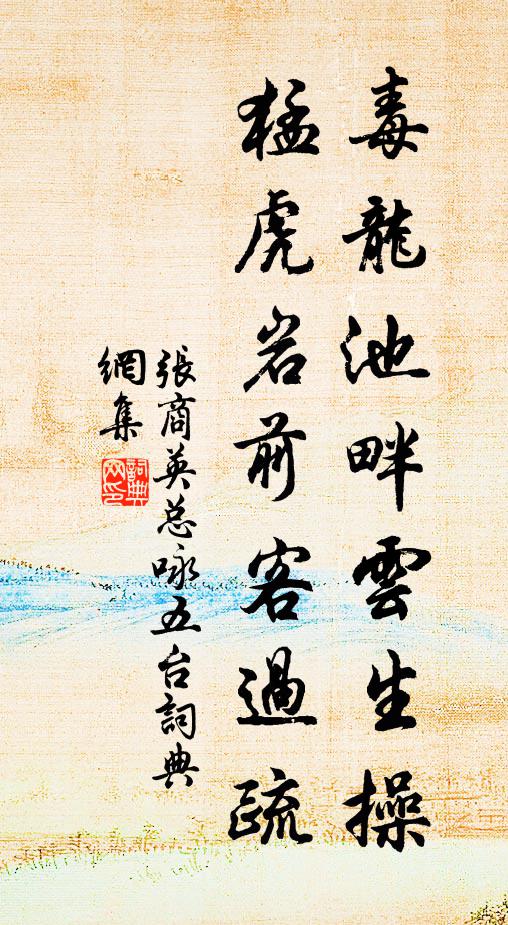 毒龍池畔雲生操
猛虎岩前客過疏
張商英总咏五台詞典
網集
詞典
网印